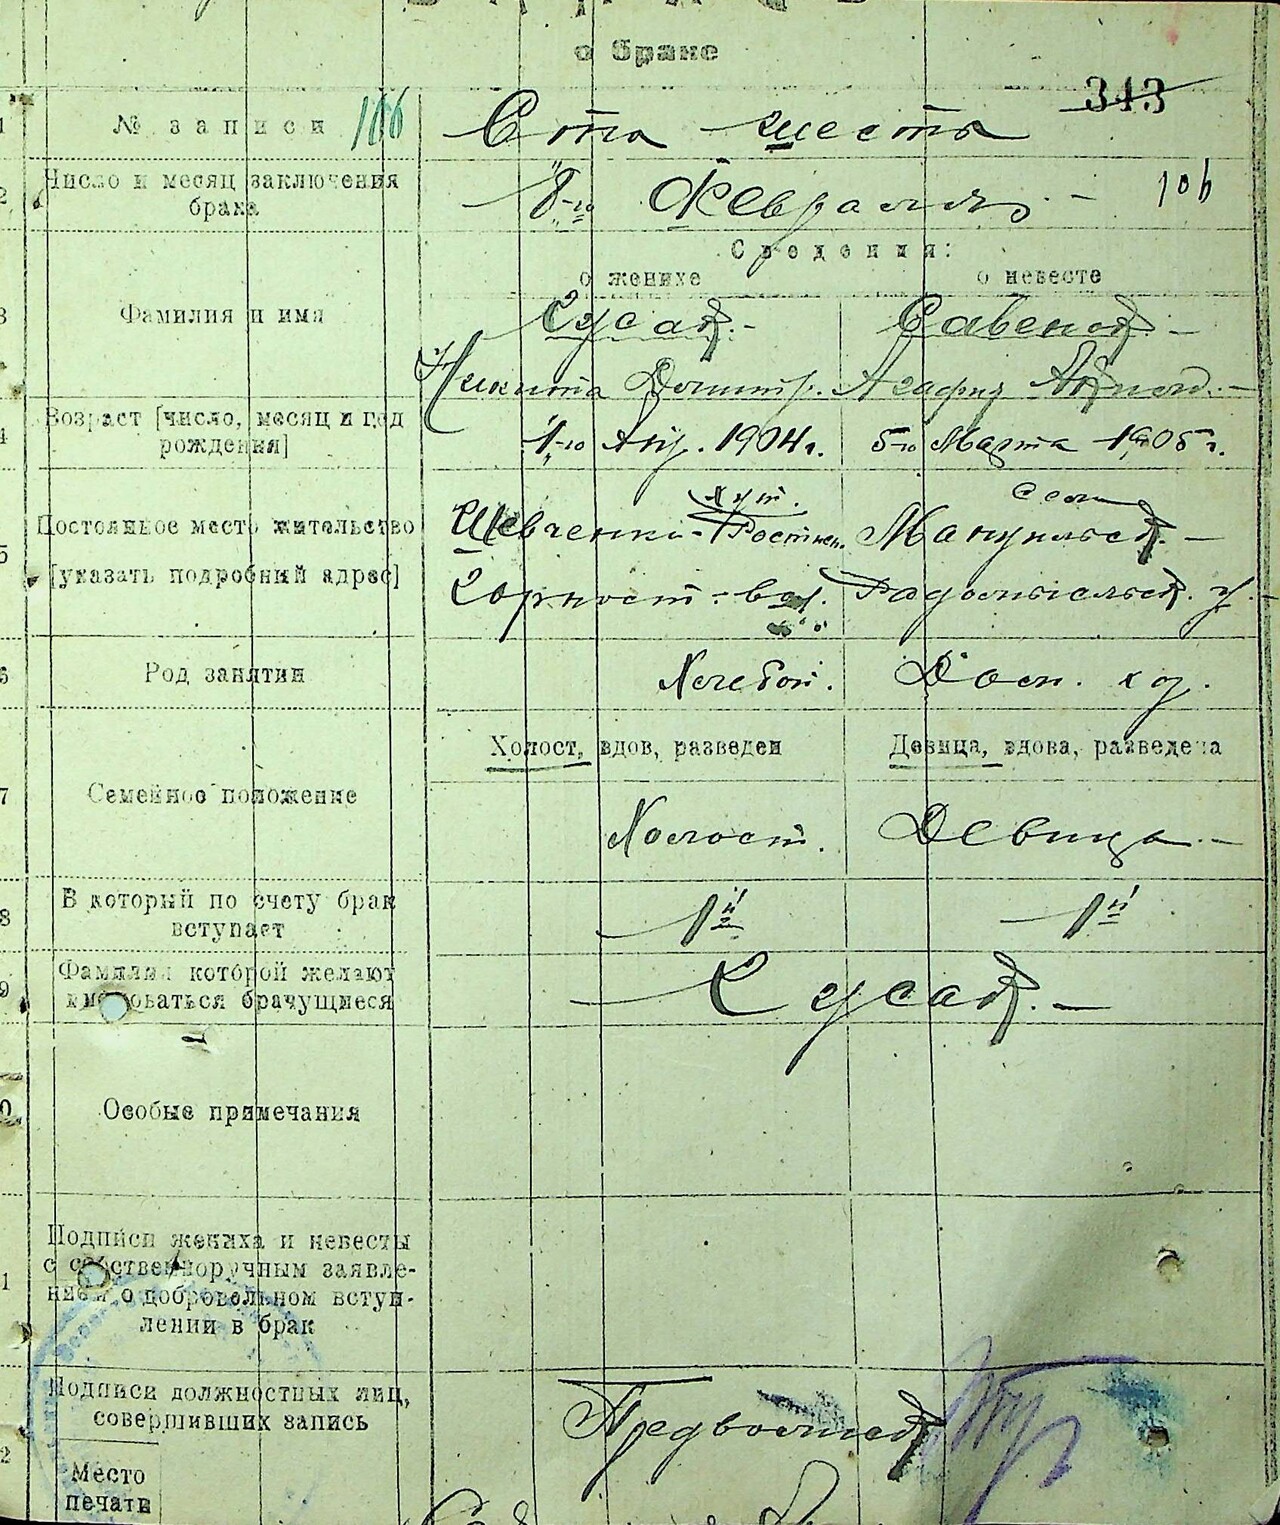 о браке
343
1 № записи 106 Ста шеста
2 Число и месяц заключения
брака
8-го Февраля 106
Сведения:
о женихе о невесте
3 Фамилия и имя
Гусак. Савенок
Никита Дмитр. Агафия
4 Возраст [число, месяц и год
рождения]
1-го 1904 г. 5-го Марта 1905 г.
5 Постоянное место жительство
[указать подробний адрес]
хут.
Шевченки
Горност. вол. Радомысльск. у.
6 Род занятии
Хлебоп. Дом. хоз.
7 Семейное положение
Холост, вдов, разведен Девица, вдова, разведена
Холост. Девица
8 В который по счету брак
вступает
1й 1й
9 Фамилия которой желают
именоваться брачущиеся
Гусак.
Особые примечания
Подписи жениха и невесты
с собственноручным заявле-
нием о добровольном вступ-
лении в брак
Подписи должностных лиц,
совершивших запись
Место
печати